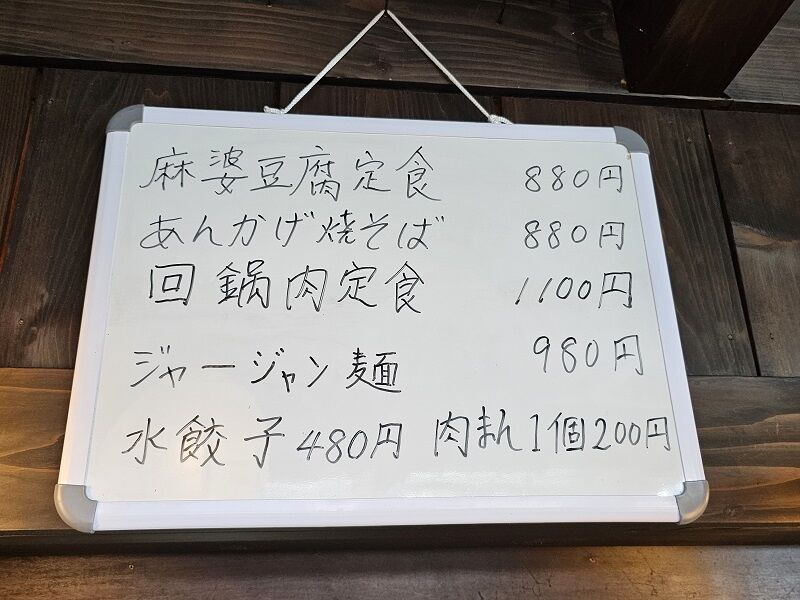 麻婆豆腐定食 880円
あんかげ焼そば 880円
回鍋肉定食 1100円
ジャージャン麺 980円
水餃子480円 肉まん1個200円